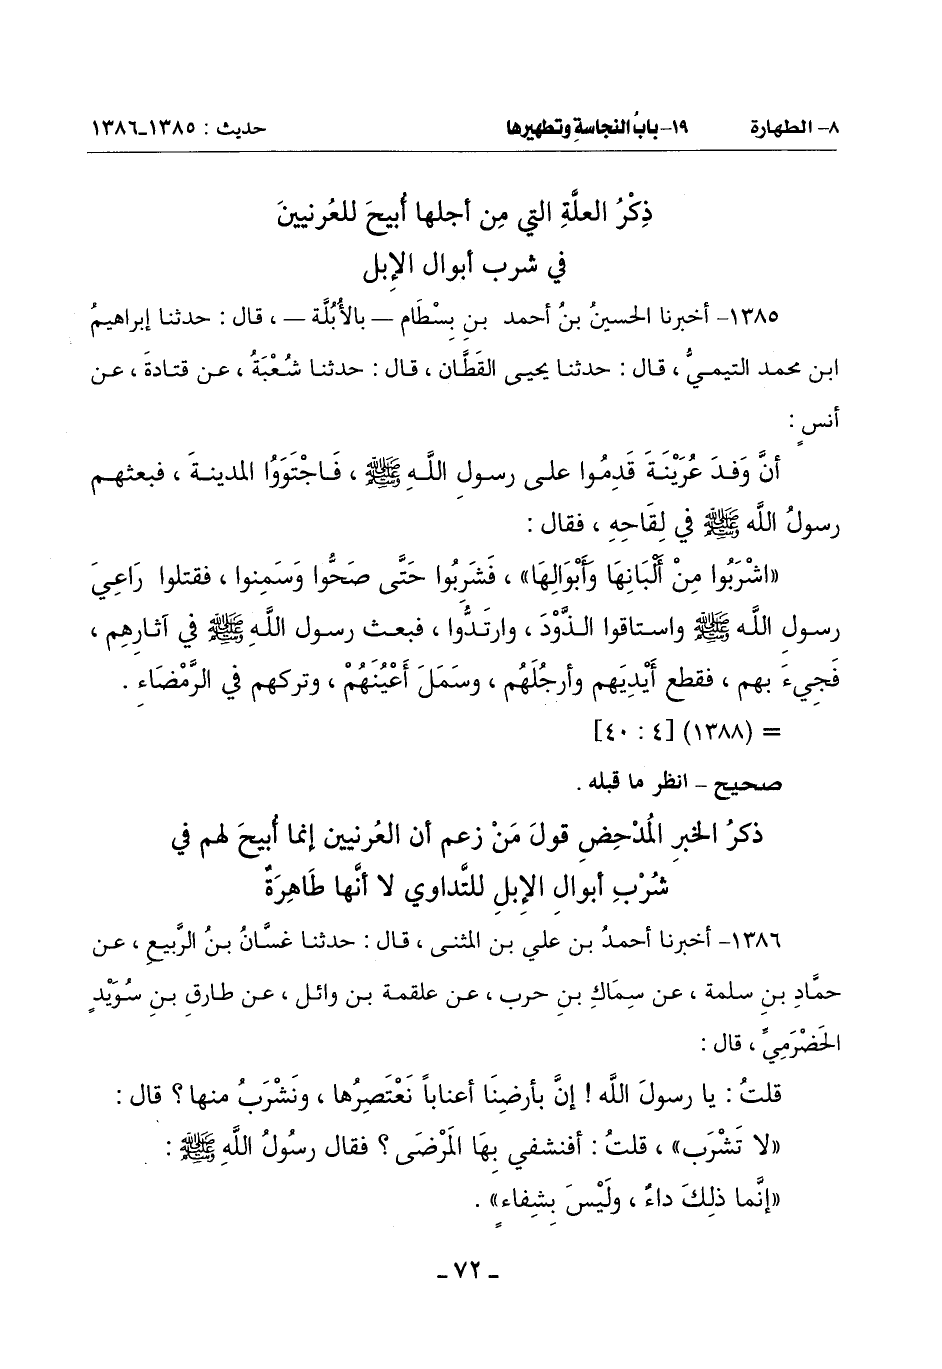 ٨- الطهارة ١٩- بابُ النجاسةِ وتطهيرها حديث : ١٣٨٥-١٣٨٦
ذِكْرُ العلَّةِ التي مِن أجلها أُبيحَ للعُرنيينَ
في شرب أبوال الإبل
١٣٨٥- أخبرنا الحسينُ بنُ أحمد بنِ بِسْطَام – بالأُبُلَّة – ، قال : حدثنا إبراهيمُ
ابن محمد التيميُّ ، قال : حدثنا يحيى القَطَّان ، قال : حدثنا شُعْبَةُ ، عن قتادةَ ، عن
أنسٍ :
أنَّ وَفدَ عُرَيْنَةَ قَدِمُوا على رسولِ اللَّه ﷺ ، فَاجْتَوَوُا المدينةَ ، فبعثهم
رسولُ اللَّه ﷺ في لِقَاحِهِ ، فقال :
«اشْرَبُوا مِنْ أَلْبَانِهَا وَأَبْوَالِهَا» ، فَشَرِبُوا حَتَّى صَحُّوا وَسَمِنوا ، فقتلوا رَاعِيَ
رسولِ اللَّه ﷺ واستاقوا الذَّوْدَ ، وارتَدُّوا ، فبعث رسول اللَّهِ ﷺ في آثارِهِم ،
فَجِيءَ بهم ، فقطع أَيْدِيَهم وأرجُلَهُم ، وسَمَلَ أَعْيُنَهُمْ ، وتركهم في الرَّمْضَاءِ .
= (١٣٨٨) [٤ : ٤٠]
صحيح – انظر ما قبله .
ذكرُ الخبرِ المُدْحِضِ قولَ مَنْ زعم أن العُرنيين إنما أُبيحَ لهم في
شُرْبِ أبوالِ الإبلِ للتَّداوي لا أنَّها طَاهِرَةٌ
١٣٨٦- أخبرنا أحمدُ بن علي بن المثنى ، قال : حدثنا غسَّانُ بنُ الرَّبيعِ ، عن
حمَّادِ بنِ سلمة ، عن سِماكِ بنِ حرب ، عن علقمة بن وائل ، عن طارق بنِ سُوَيْدٍ
الحَضْرَمِيِّ ، قال :
قلتُ : يا رسولَ اللَّه ! إنَّ بأرضِنَا أعناباً نَعْتَصِرُها ، ونَشْرَبُ منها ؟ قال :
«لا تَشْرَب» ، قلتُ : أفنشفي بهَا المَرْضَى ؟ فقال رسُولُ اللَّهِ ﷺ :
«إنَّما ذلِكَ داءٌ ، ولَيْسَ بِشِفاءٍ» .
- ٧٢ -